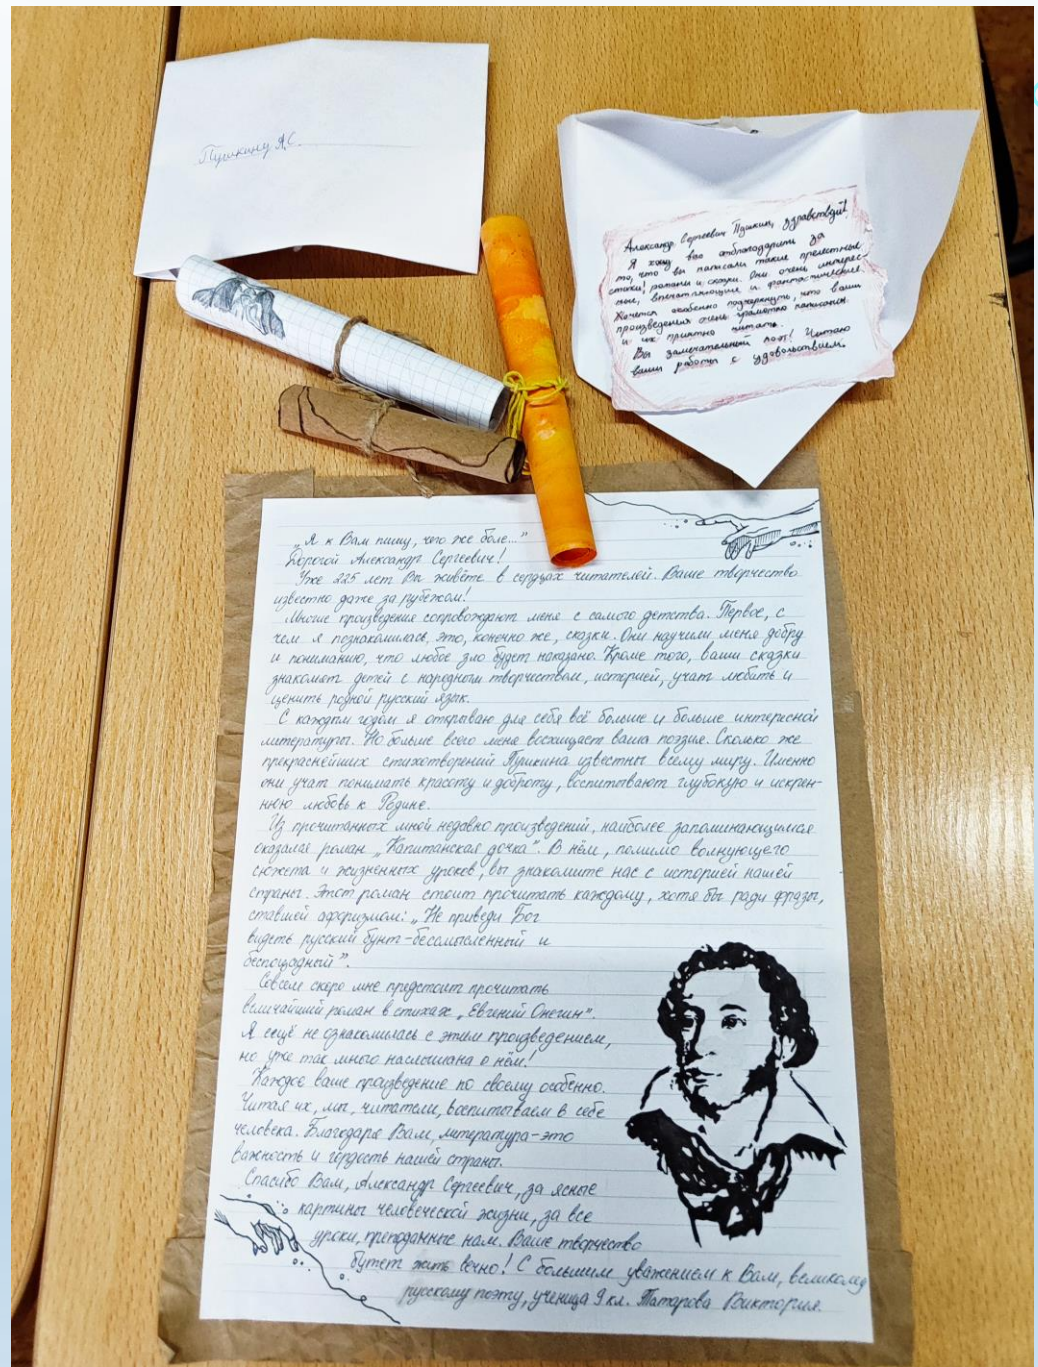 Пушкину А.С.
Александр Сергеевич Пушкин, здравствуй!
Я хочу вас отблагодарить за
то, что вы написали такие прелестные
стихи, романы и сказки. Они очень интерес-
ные, впечатляющие и фантастические.
Хочется особенно подчеркнуть, что ваши
произведения очень грамотно написаны
и их приятно читать.
Вы замечательный поэт! Читаю
ваши работы с удовольствием.
„Я к Вам пишу, чего же боле..."
Дорогой Александр Сергеевич!
Уже 225 лет Вы живёте в сердцах читателей. Ваше творчество
известно даже за рубежом!
Многие произведения сопровождают меня с самого детства. Первое, с
чем я познакомилась, это, конечно же, сказки. Они научили меня добру
и пониманию, что любое зло будет наказано. Кроме того, ваши сказки
знакомят детей с народным творчеством, историей, учат любить и
ценить родной русский язык.
С каждым годом я открываю для себя всё больше и больше интересной
литературы. Но больше всего меня восхищает ваша поэзия. Сколько же
прекраснейших стихотворений Пушкина известны всему миру. Именно
они учат понимать красоту и доброту, воспитывают глубокую и искрен-
нюю любовь к Родине.
Из прочитанных мной недавно произведений, наиболее запоминающимся
оказался роман „Капитанская дочка". В нём, помимо волнующего
сюжета и жизненных уроков, вы знакомите нас с историей нашей
страны. Этот роман стоит прочитать каждому, хотя бы ради фразы,
ставшей афоризмом: „Не приведи Бог
видеть русский бунт-бессмысленный и
беспощадный".
Совсем скоро мне предстоит прочитать
величайший роман в стихах „Евгений Онегин".
Я ещё не ознакомилась с этим произведением,
но уже так много наслышана о нём!
Каждое ваше произведение по своему особенно.
Читая их, мы, читатели, воспитываем в себе
человека. Благодаря Вам, литература-это
важность и гордость нашей страны.
Спасибо Вам, Александр Сергеевич, за ясные
картины человеческой жизни, за все
уроки, преподанные нам. Ваше творчество
бутет жить вечно! С большим уважением к Вам, великому
русскому поэту, ученица 9 кл. Татарова Виктория.